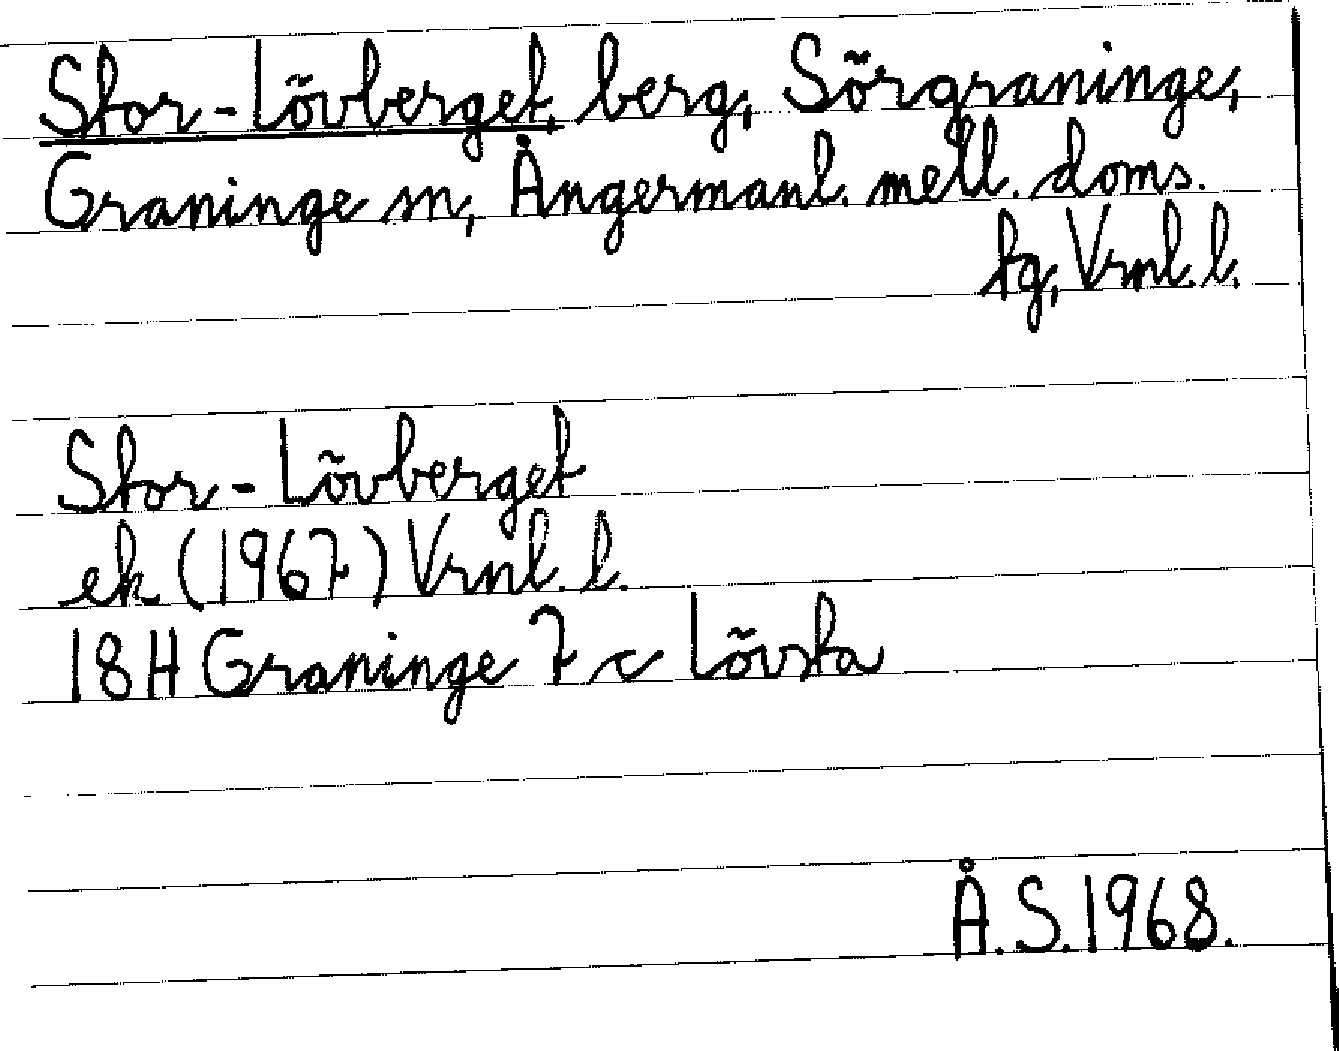 Stor-Lövberget, berg, Sörgraninge,
Graninge sn, Ångermanl. mell. doms.
tg, Vrnl. l.
Stor-Lövberget
ek (1967) Vrnl. l.
18H Graninge 7 c Lövsta
Å.S. 1968.